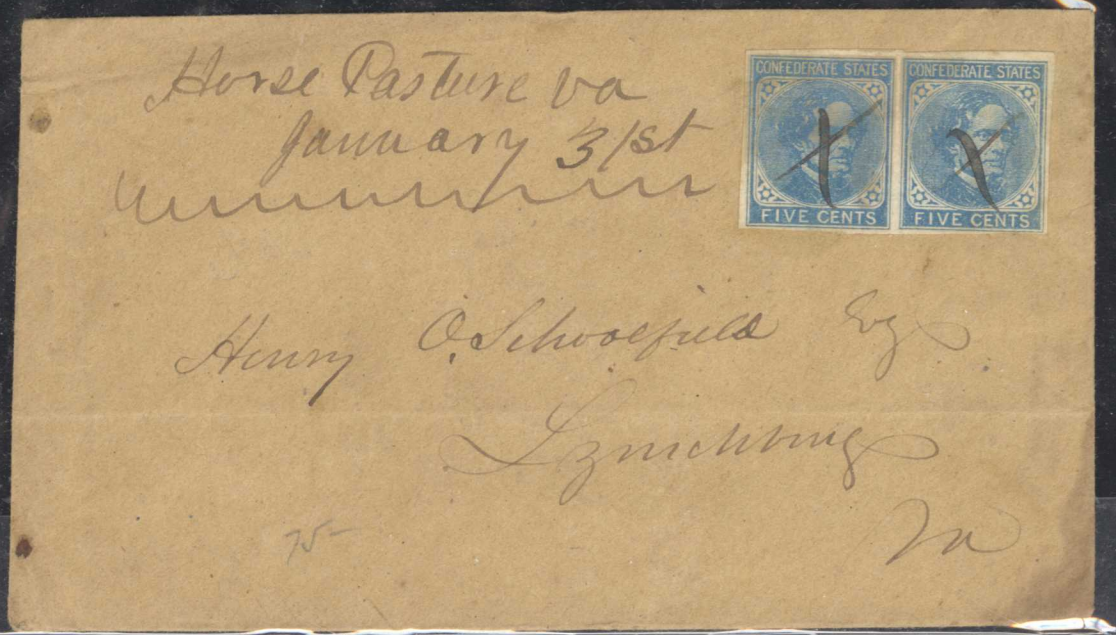 Horse Pasture va
January 31st
CONFEDERATE STATES
FIVE CENTS
CONFEDERATE STATES
FIVE CENTS
Henry O. Schoolfield Esq
Lynchburg
Va
75-